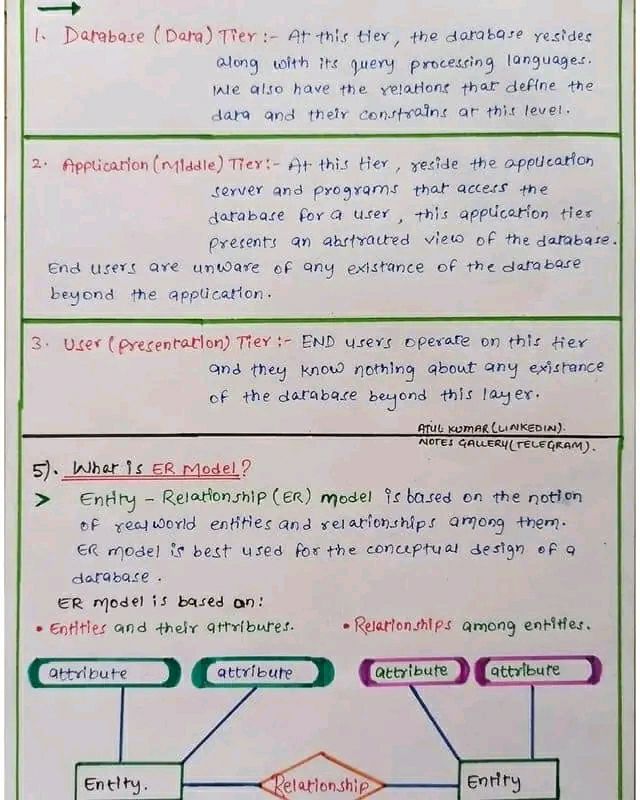 1. Database (Data) Tier :- At this tier, the database resides
along with its query processing languages.
We also have the relations that define the
data and their constrains at this level.
2. Application (Middle) Tier:- At this tier, reside the application
server and programs that access the
database for a user, this application tier
presents an abstracted view of the database.
End users are unware of any existance of the database
beyond the application.
3. User (Presentation) Tier :- END users operate on this tier
and they know nothing about any existance
of the database beyond this layer.
ATUL KUMAR (LINKEDIN).
NOTES GALLERY (TELEGRAM).
5). What is ER Model?
> Entity - Relationship (ER) model is based on the notion
of real world entities and relationships among them.
ER model is best used for the conceptual design of a
database.
ER model is based on:
• Entities and their attributes. • Relationships among entities.
attribute attribute attribute attribute
Entity. Relationship Entity